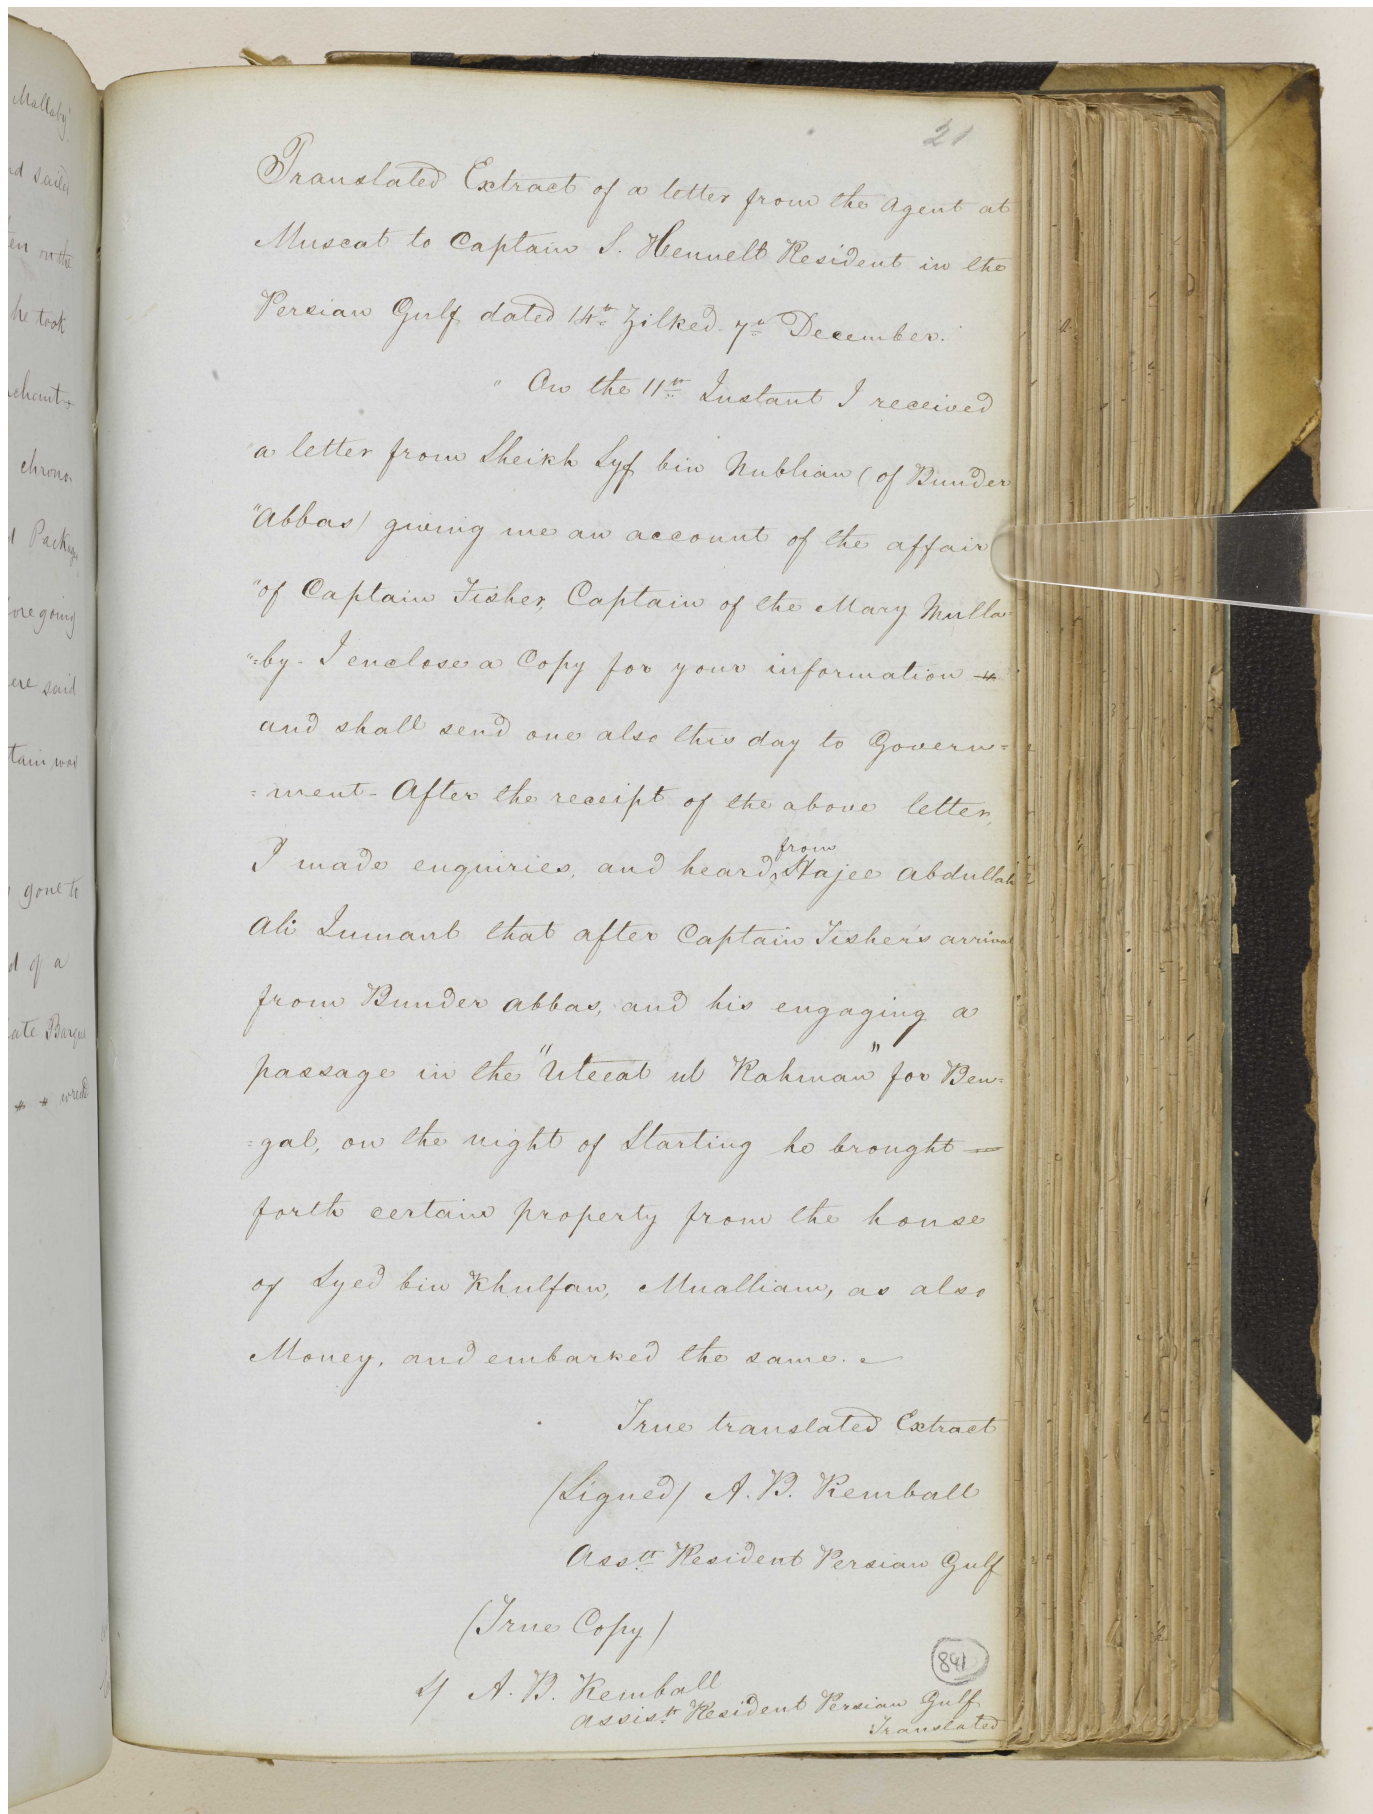 Mallaby
nd sailed
ten on the
he took
rchant
chrono
d Package
foregoing
ere said
tain was
gone to
d of a
ate Barque
wreck
21
Translated Extract of a letter from the Agent at
Muscat to Captain S. Hennell Resident in the
Persian Gulf dated 14th Zilked. 7th December.
" On the 11th Instant I received
a letter from Sheikh Syf bin Nubhan (of Bunder
"Abbas) giving me an account of the affair
"of Captain Fisher, Captain of the Mary Mulla=
"=by - I enclose a Copy for your information
and shall send one also this day to Govern=
=ment - After the receipt of the above letter,
I made enquiries, and heard from Hajee Abdullah
Ali Jumant that after Captain Fisher's arrival
from Bunder Abbas, and his engaging a
passage in the "Uteeat ul Rahman" for Ben=
=gal, on the night of Starting he brought =
forth certain property from the house
of Syed bin Khulfan, Mualliam, as also
Money, and embarked the same.
True translated Extract
(Signed) A. B. Kemball
Asstt Resident Persian Gulf
(True Copy)
S/ A. B. Kemball
Assistt Resident Persian Gulf
Translated
891